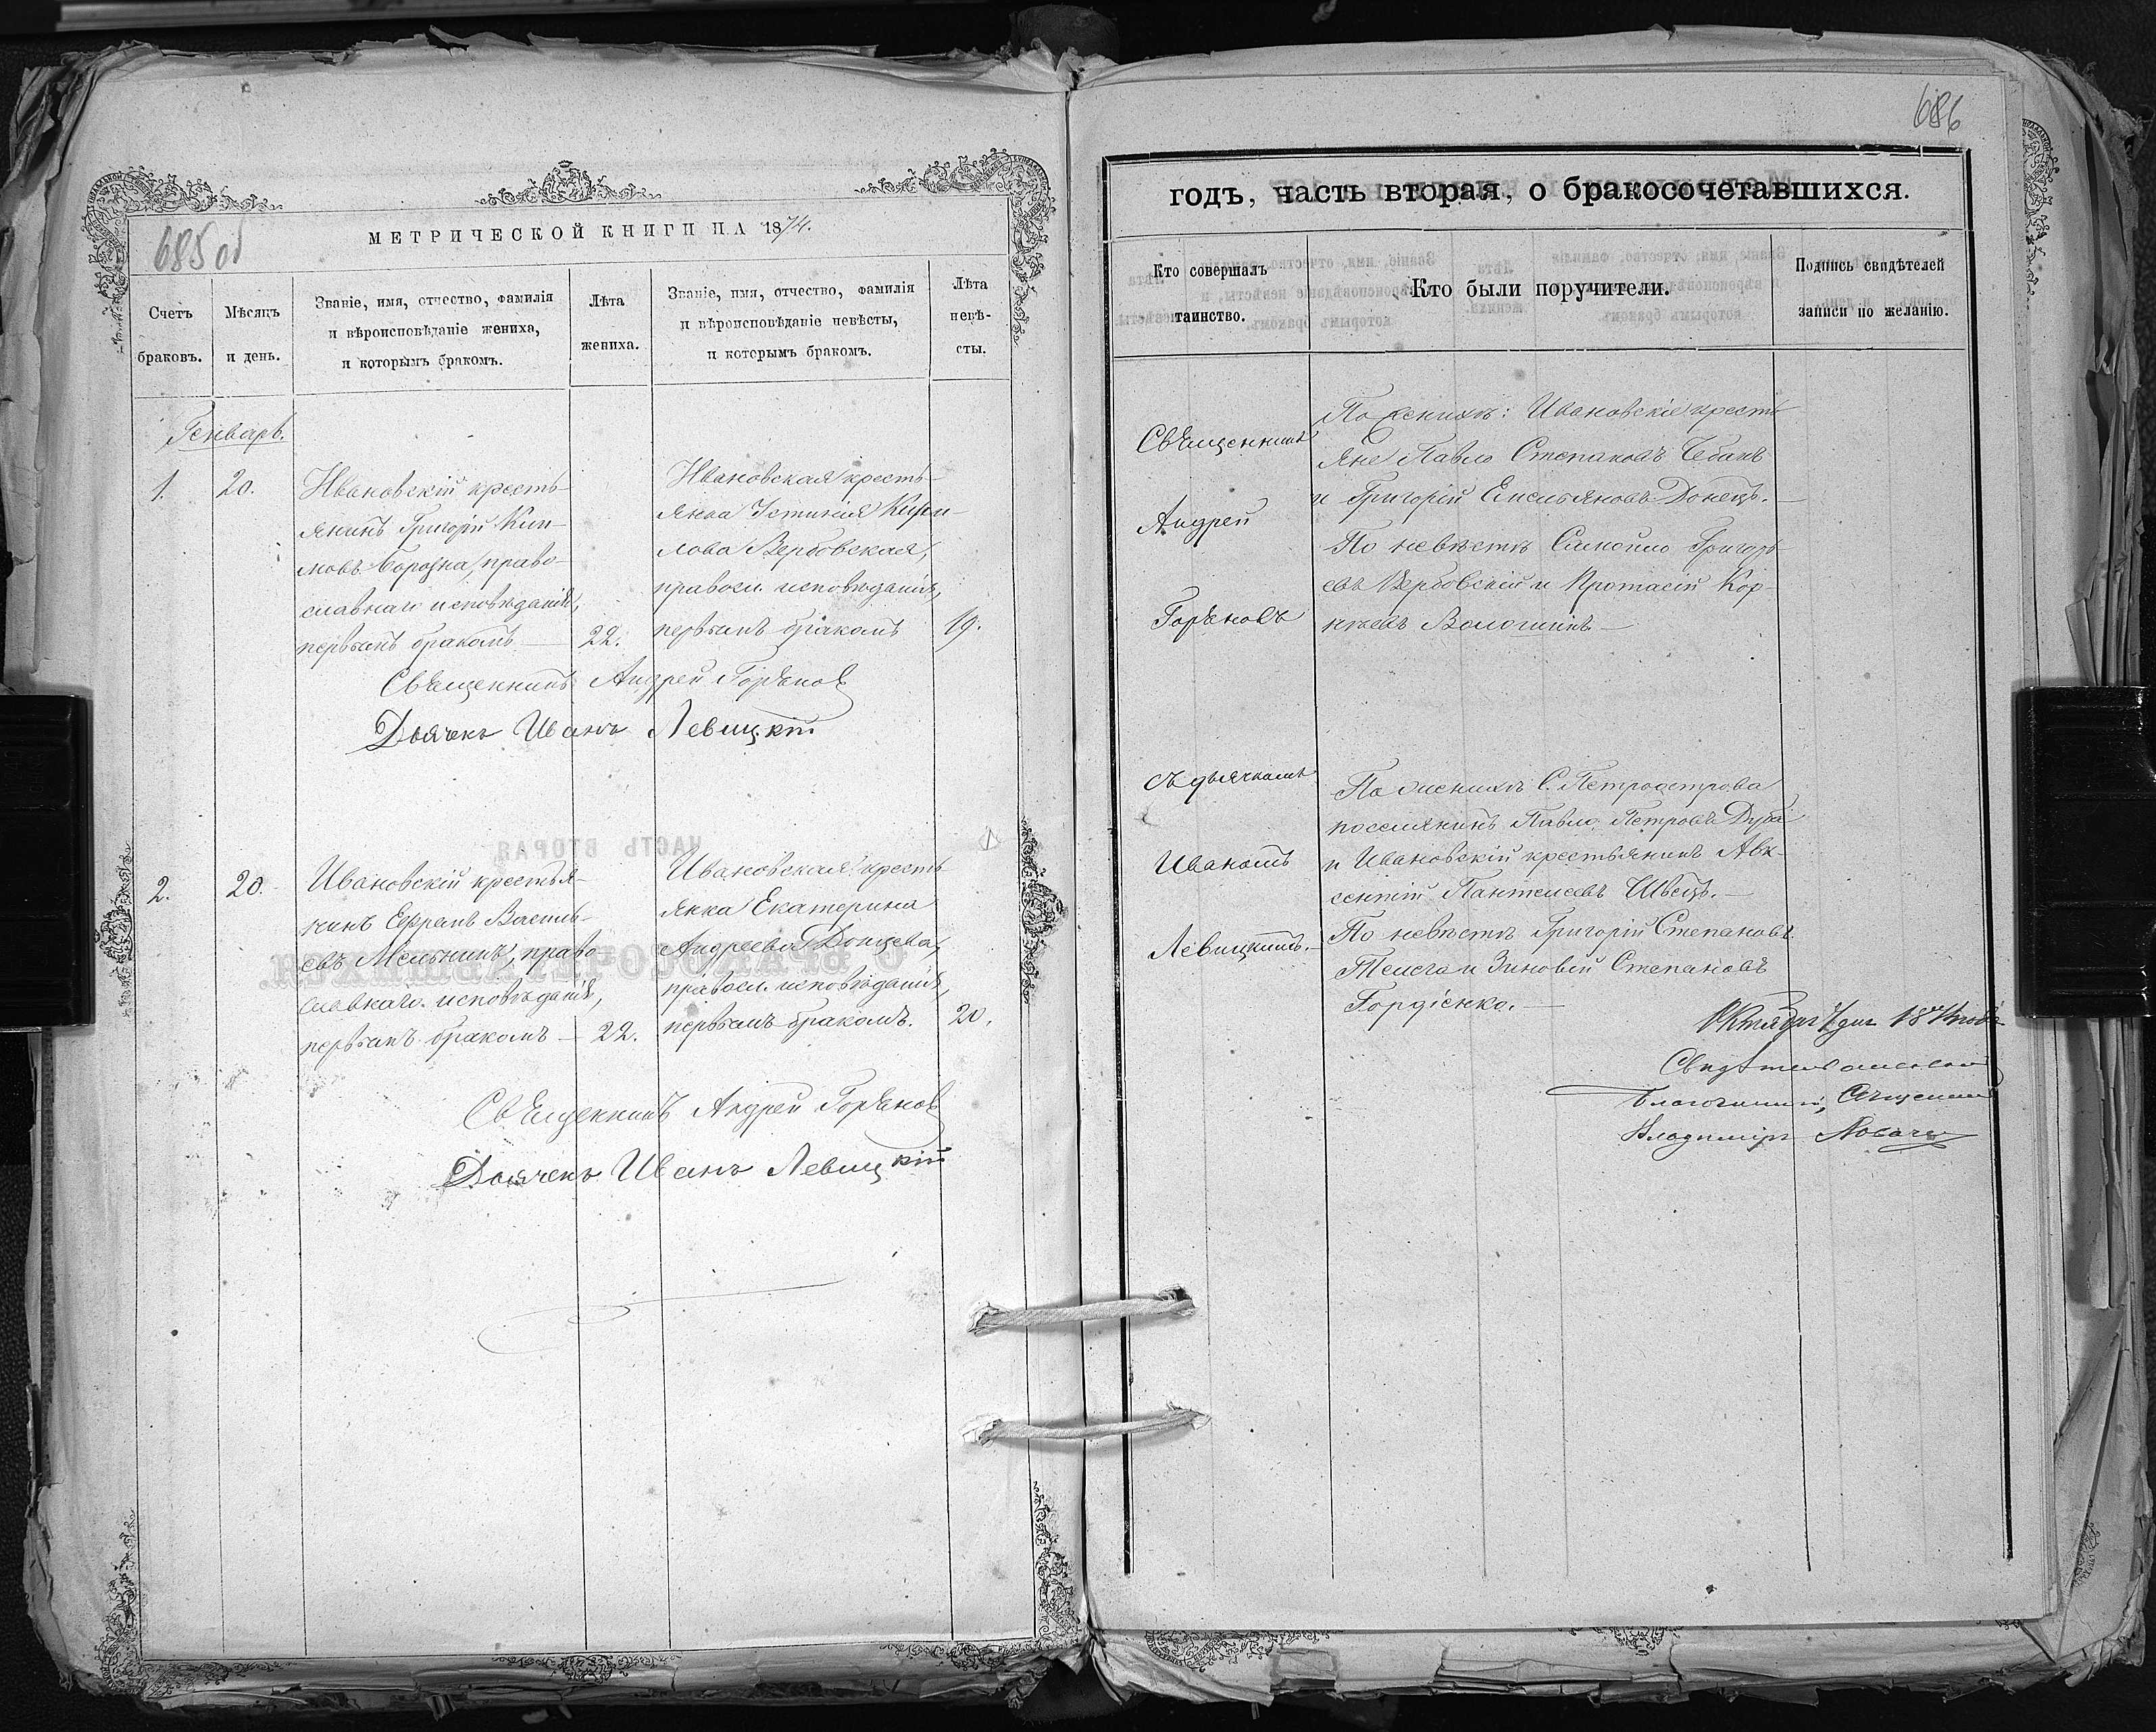 685 об
МЕТРИЧЕСКОЙ КНИГИ НА 1874.
Счетъ
браковъ.
Мѣсяцъ
и день.
Званіе, имя, отчество, фамилія
и вѣроисповѣданіе жениха,
и которымъ бракомъ.
Лѣта
жениха.
Званіе, имя, отчество, фамилія
и вѣроисповѣданіе невѣсты,
и которымъ бракомъ.
Лѣта
невѣ-
сты.
Генварь.
1.
20.
Ивановскій кресть-
янинъ Григорій Кли-
мовъ Борозна, право-
славнаго исповѣданія,
первымъ бракомъ —
22.
Ивановская кресть-
янка Устинія Кирил-
лова Вербовская,
правосл. исповѣданія,
первымъ бракомъ
19.
Священникъ Андрей Горѣновъ
Дьячекъ Иванъ Левицкій
2.
20.
Ивановскій крестья-
нинъ Ефремъ Василь-
евъ Мельникъ, право-
славнаго исповѣданія,
первымъ бракомъ —
22.
Ивановская кресть-
янка Екатерина
Андреева Донцева,
правосл. исповѣданія,
первымъ бракомъ.
20.
Священникъ Андрей Горѣновъ
Дьячекъ Иванъ Левицкій
686
годъ, часть вторая, о бракосочетавшихся.
Кто совершалъ
таинство.
Кто были поручители.
Подпись свидѣтелей
записи по желанію.
Священникъ
Андрей
Горѣновъ
съ дьячкомъ
Иваномъ
Левицкимъ.
По женихѣ: Ивановскіе кресть-
яне Павло Степановъ Чбанъ
и Григорій Емельяновъ Донецъ. —
По невѣстѣ Самойло Григорь-
евъ Вербовскій и Протасій Кор-
нѣевъ Волошинъ. —
По женихѣ С. Петроострова
поселянинъ Павло Петровъ Дуба
и Ивановскій крестьянинъ Авк-
сентій Пантелеевъ Швецъ.
По невѣстѣ Григорій Степановъ
Телега и Зиновій Степановъ
Гордіенко. —
Октября 7 дня 1874 года
Свидѣтельствовалъ
Благочинный, Священникъ
Владиміръ